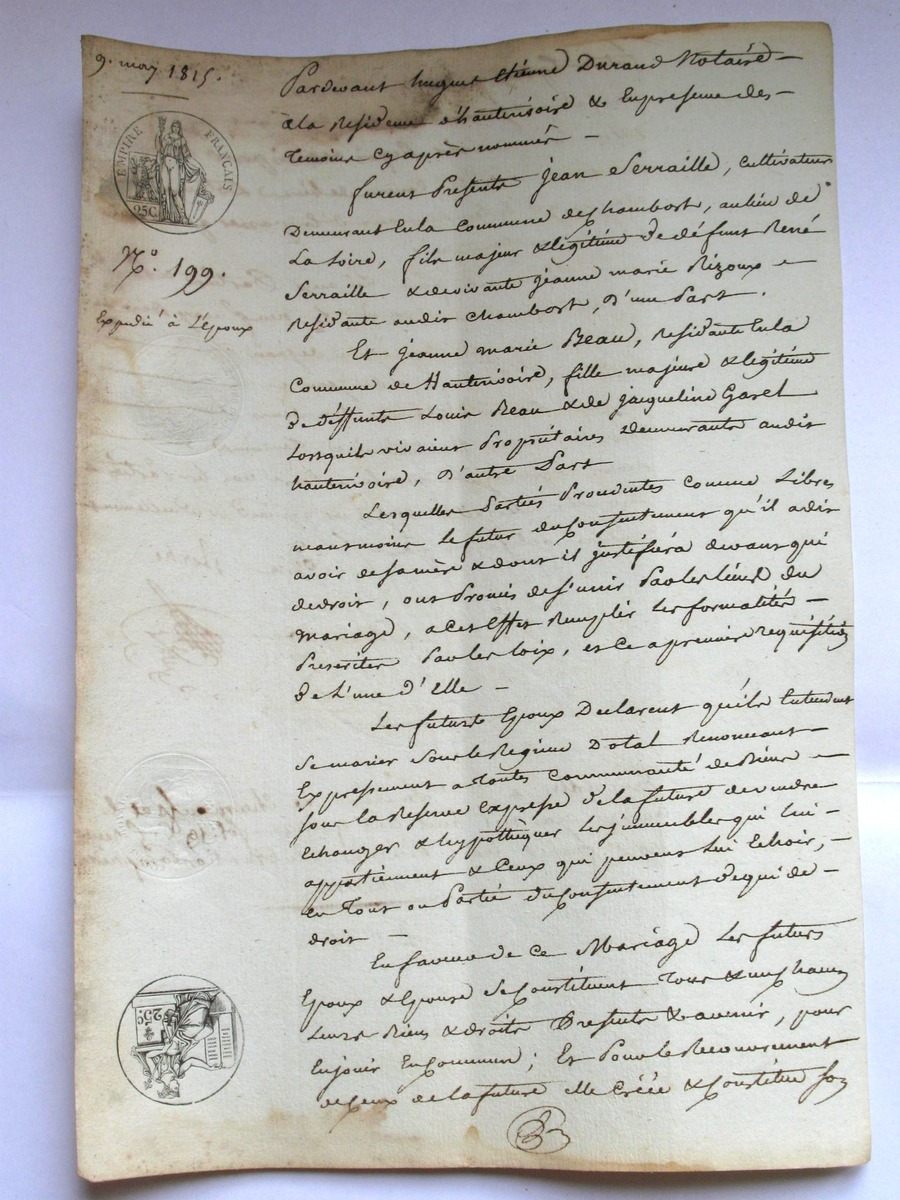 9. may 1815.
EMPIRE FRANÇAIS
25C.
N.º 199.
Expedié à L'Epoux
Pardevant hugues Etienne Durand Notaire
à la Residence d'hauterivoire & En presence des
Temoins Cy après nommés
furent Presents Jean Serraille, cultivateur
Demeurant En la Commune de Chambost, au lieu de
La Loire, fils majeur & légitime de défunt René
Serraille & de vivante jeanne marie Rizoux
Residante audit Chambost, D'une Part.
Et jeanne marie Beau, residante En la
Commune de Hauterivoire, fille majeure & légitime
de déffunts Louis Beau & de jacqueline Garel
Lorsquils vivaient Propriétaires Demeurants audit
hauterivoire, D'autre Part
Lesquelles Parties Procedantes comme Libres
neansmoins le futur du Consentement qu'il a dit
avoir de sa mère & dont il justifiera devant qui
de droit, ont Promis de s'unir Par les liens du
Mariage, a Cet Effet Remplir Les formalités
Prescrites Par les loix, et Ce a premiere requisition
de L'une d'Elle
Les futurs Epoux Declarent qu'ils Entendent
se marier sous le Regime Dotal Renoncant
Expressement a Toutes Communauté de Biens
sous la Reserve Expresse de la future de vendre
Echanger & hypothèquer Les jmmeubles qui lui
appartiennent & Ceux qui peuvent Lui Echoir,
en Tout ou Partie du Consentement de qui de
droit
En faveur de Ce Mariage Les futurs
Epoux & Epouse se Constituent Tous & un chacun
Leurs Biens & droits Presents & avenir, pour
En jouir En Commun; Et Pour le Recouvrement
de Ceux de la future elle Créée & Constitue son
25C.